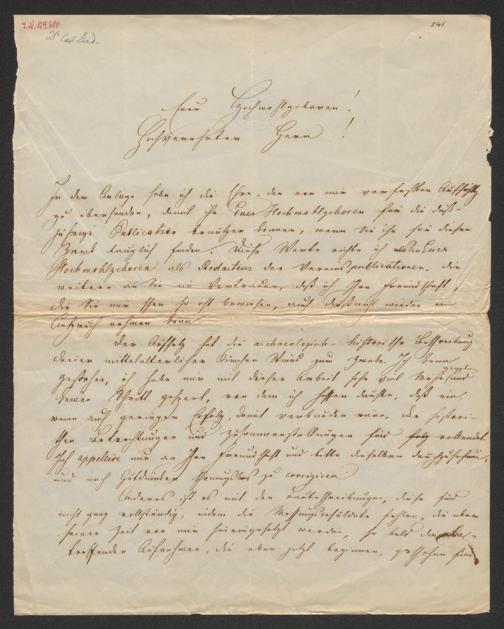 I.N. 129.680
541
Dr Carl Lind.
Euer Hochwohlgeboren!
Hochverehrter Herr!
In der Anlage habe ich die Ehre, den von mir verfaßten Aufsatz
zu übersenden, damit ihn Euer Hochwohlgeboren für die dieß-
jährige Publication benützen können, wenn Sie ihn für diesen
Zweck tauglich finden. Diese Worte richte ich an Euer
Hochwohlgeboren als Redacteur der Vereinspublicationen, die
weiteren an Sie im Vertrauen, daß ich Ihre Freundschaft,
die Sie mir schon so oft bewiesen, auch dießmal wieder in
Anspruch nehmen kann.
Der Aufsatz hat die archaeologisch-historische Beschreibung
dreier mittelalterlicher Kirchen Wiens zum Zwecke. Ich kann
gestehen, ich habe mir mit dieser Arbeit sehr viel Mühe
keinen Schritt gespart, von dem ich hoffen durfte, daß ein
wenn auch geringer Erfolg damit verbunden wäre. Die histori-
schen Betrachtungen und Zusammenstellungen sind vollendet.
Ich appellire nur an Ihre Freundschaft und bitte dieselben durchzusehen,
und nach Gutdünken schonungslos zu corrigiren.
Anders ist es mit den Baubeschreibungen, diese sind
nicht ganz vollständig, indem die fehlen, die aber
seiner Zeit von mir hineingesetzt werden, so bald die be-
treffenden Aufnahmen, die eben jetzt beginnen, geschehen sind